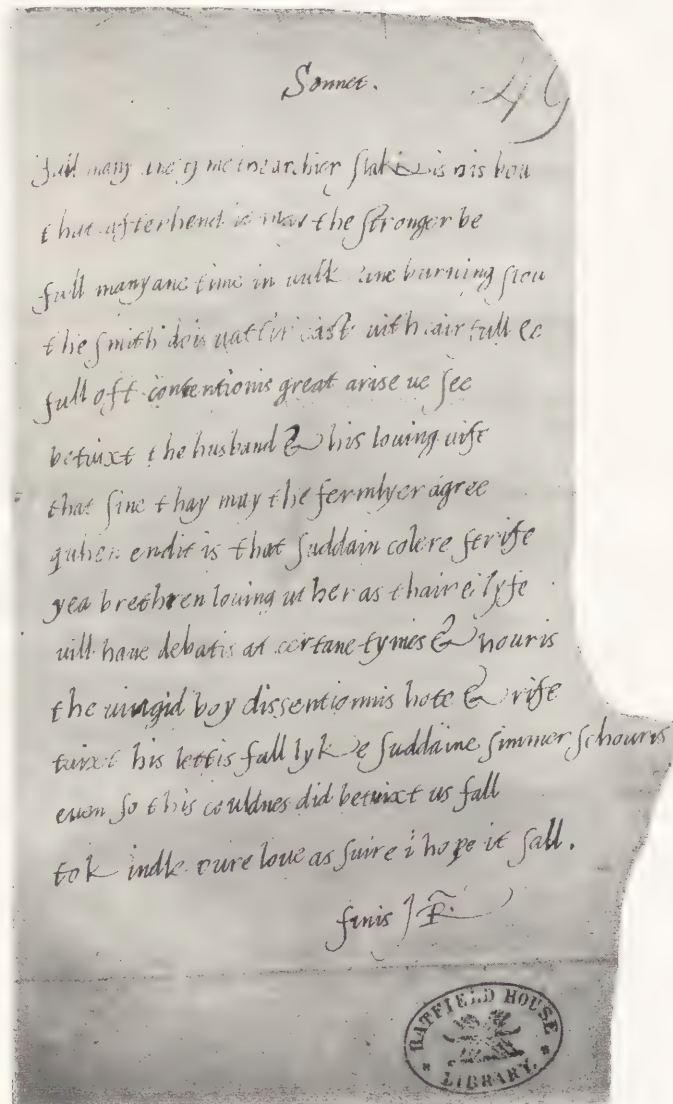 Sonnet. 49
full many ane tyme the archier slakkis his bou
that afterhend it may the stronger be
full manyane time in vulkane burning stou
the smith dois vattir cast with cair full ee
full oft contentionis great arise ue see
betuixt the husband & his louing uife
that sine thay may the fermlyer agree
quhen endit is that suddain colere strife
yea brethren louing uther as thaire lyfe
uill haue debatis at certane tymes & houris
the uingid boy dissentionnis hote & rife
tuixt his lettis fall lyke suddaine simmer schouris
euen so this couldnes did betuixt us fall
to kindle oure loue as suire i hope it sall.
finis J R.
HATFIELD HOUSE
LIBRARY.